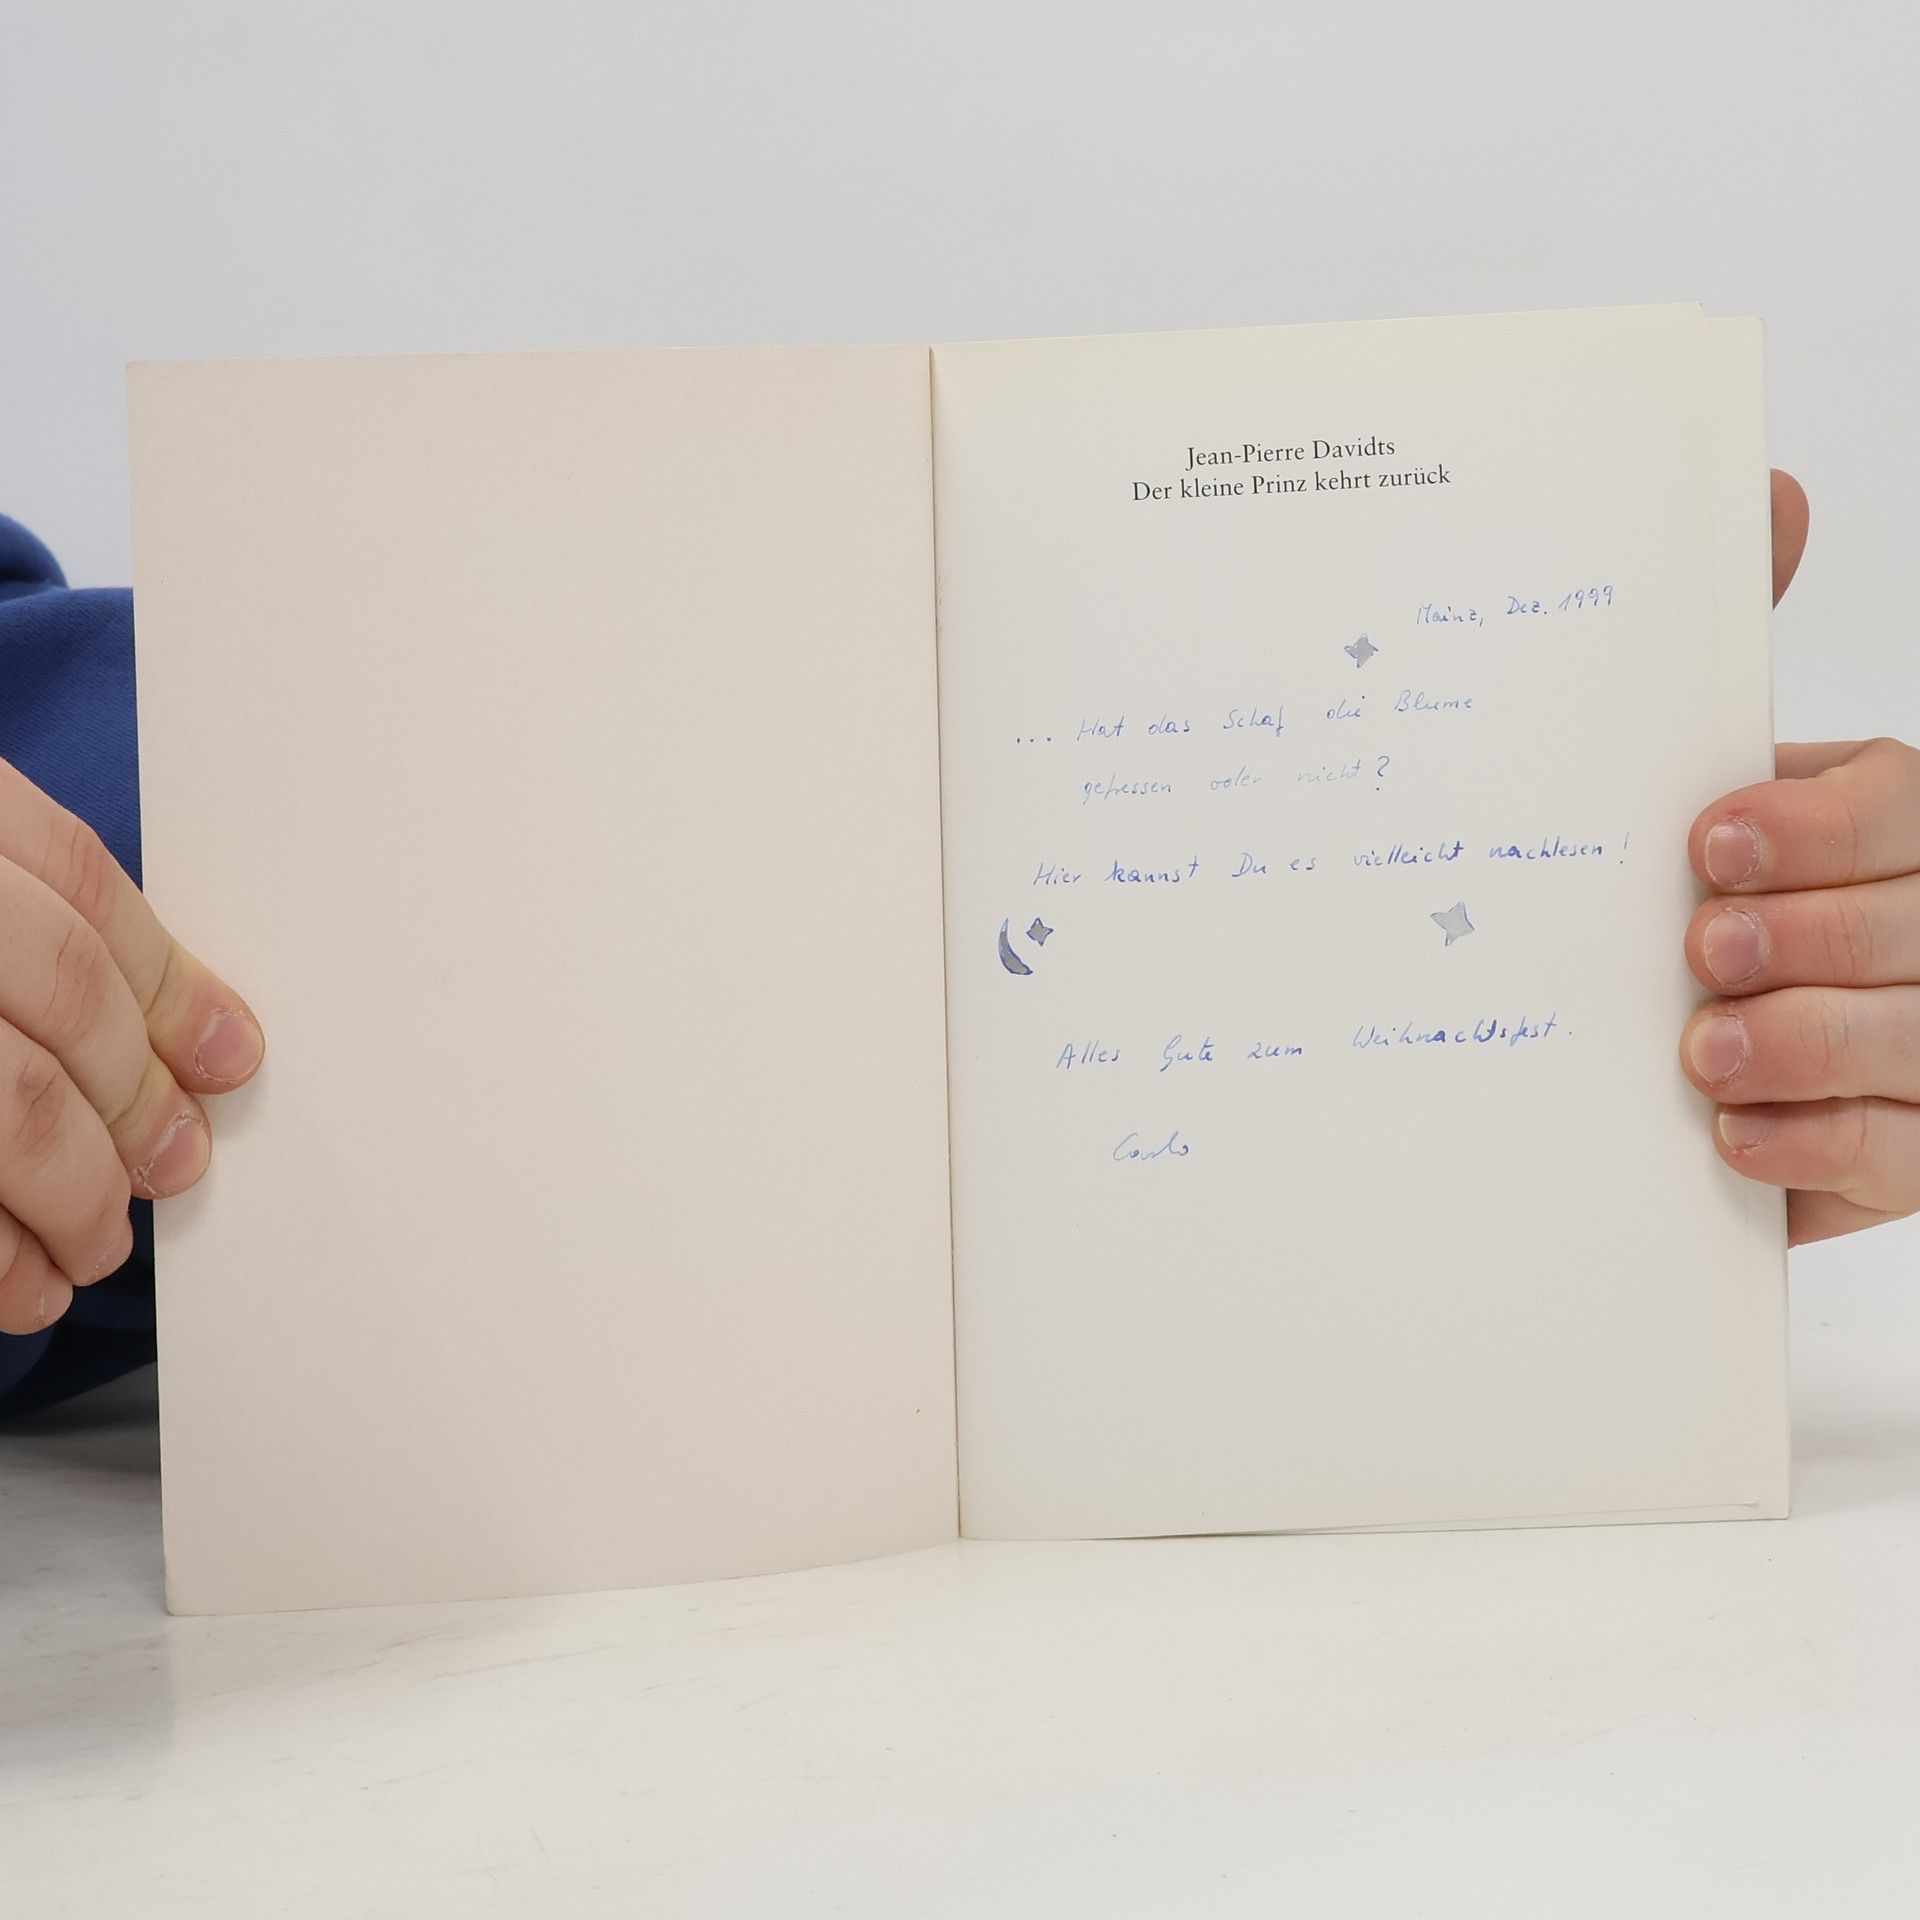 Jean-Pierre Davidts
Der kleine Prinz kehrt zurück
Mainz, Dez. 1999
... Hat das Schaf die Blume
gefressen oder nicht?
Hier kannst Du es vielleicht nachlesen!
Alles Gute zum Weihnachtsfest.
Carlo